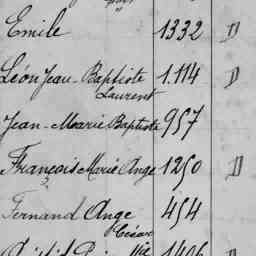 Emile 1332 D
Léon Jean-Baptiste 1.114 D
Laurent
Jean-Marie Baptiste 957
François Marie Ange 1250 D
Fernand Ange 454
César
1406 D